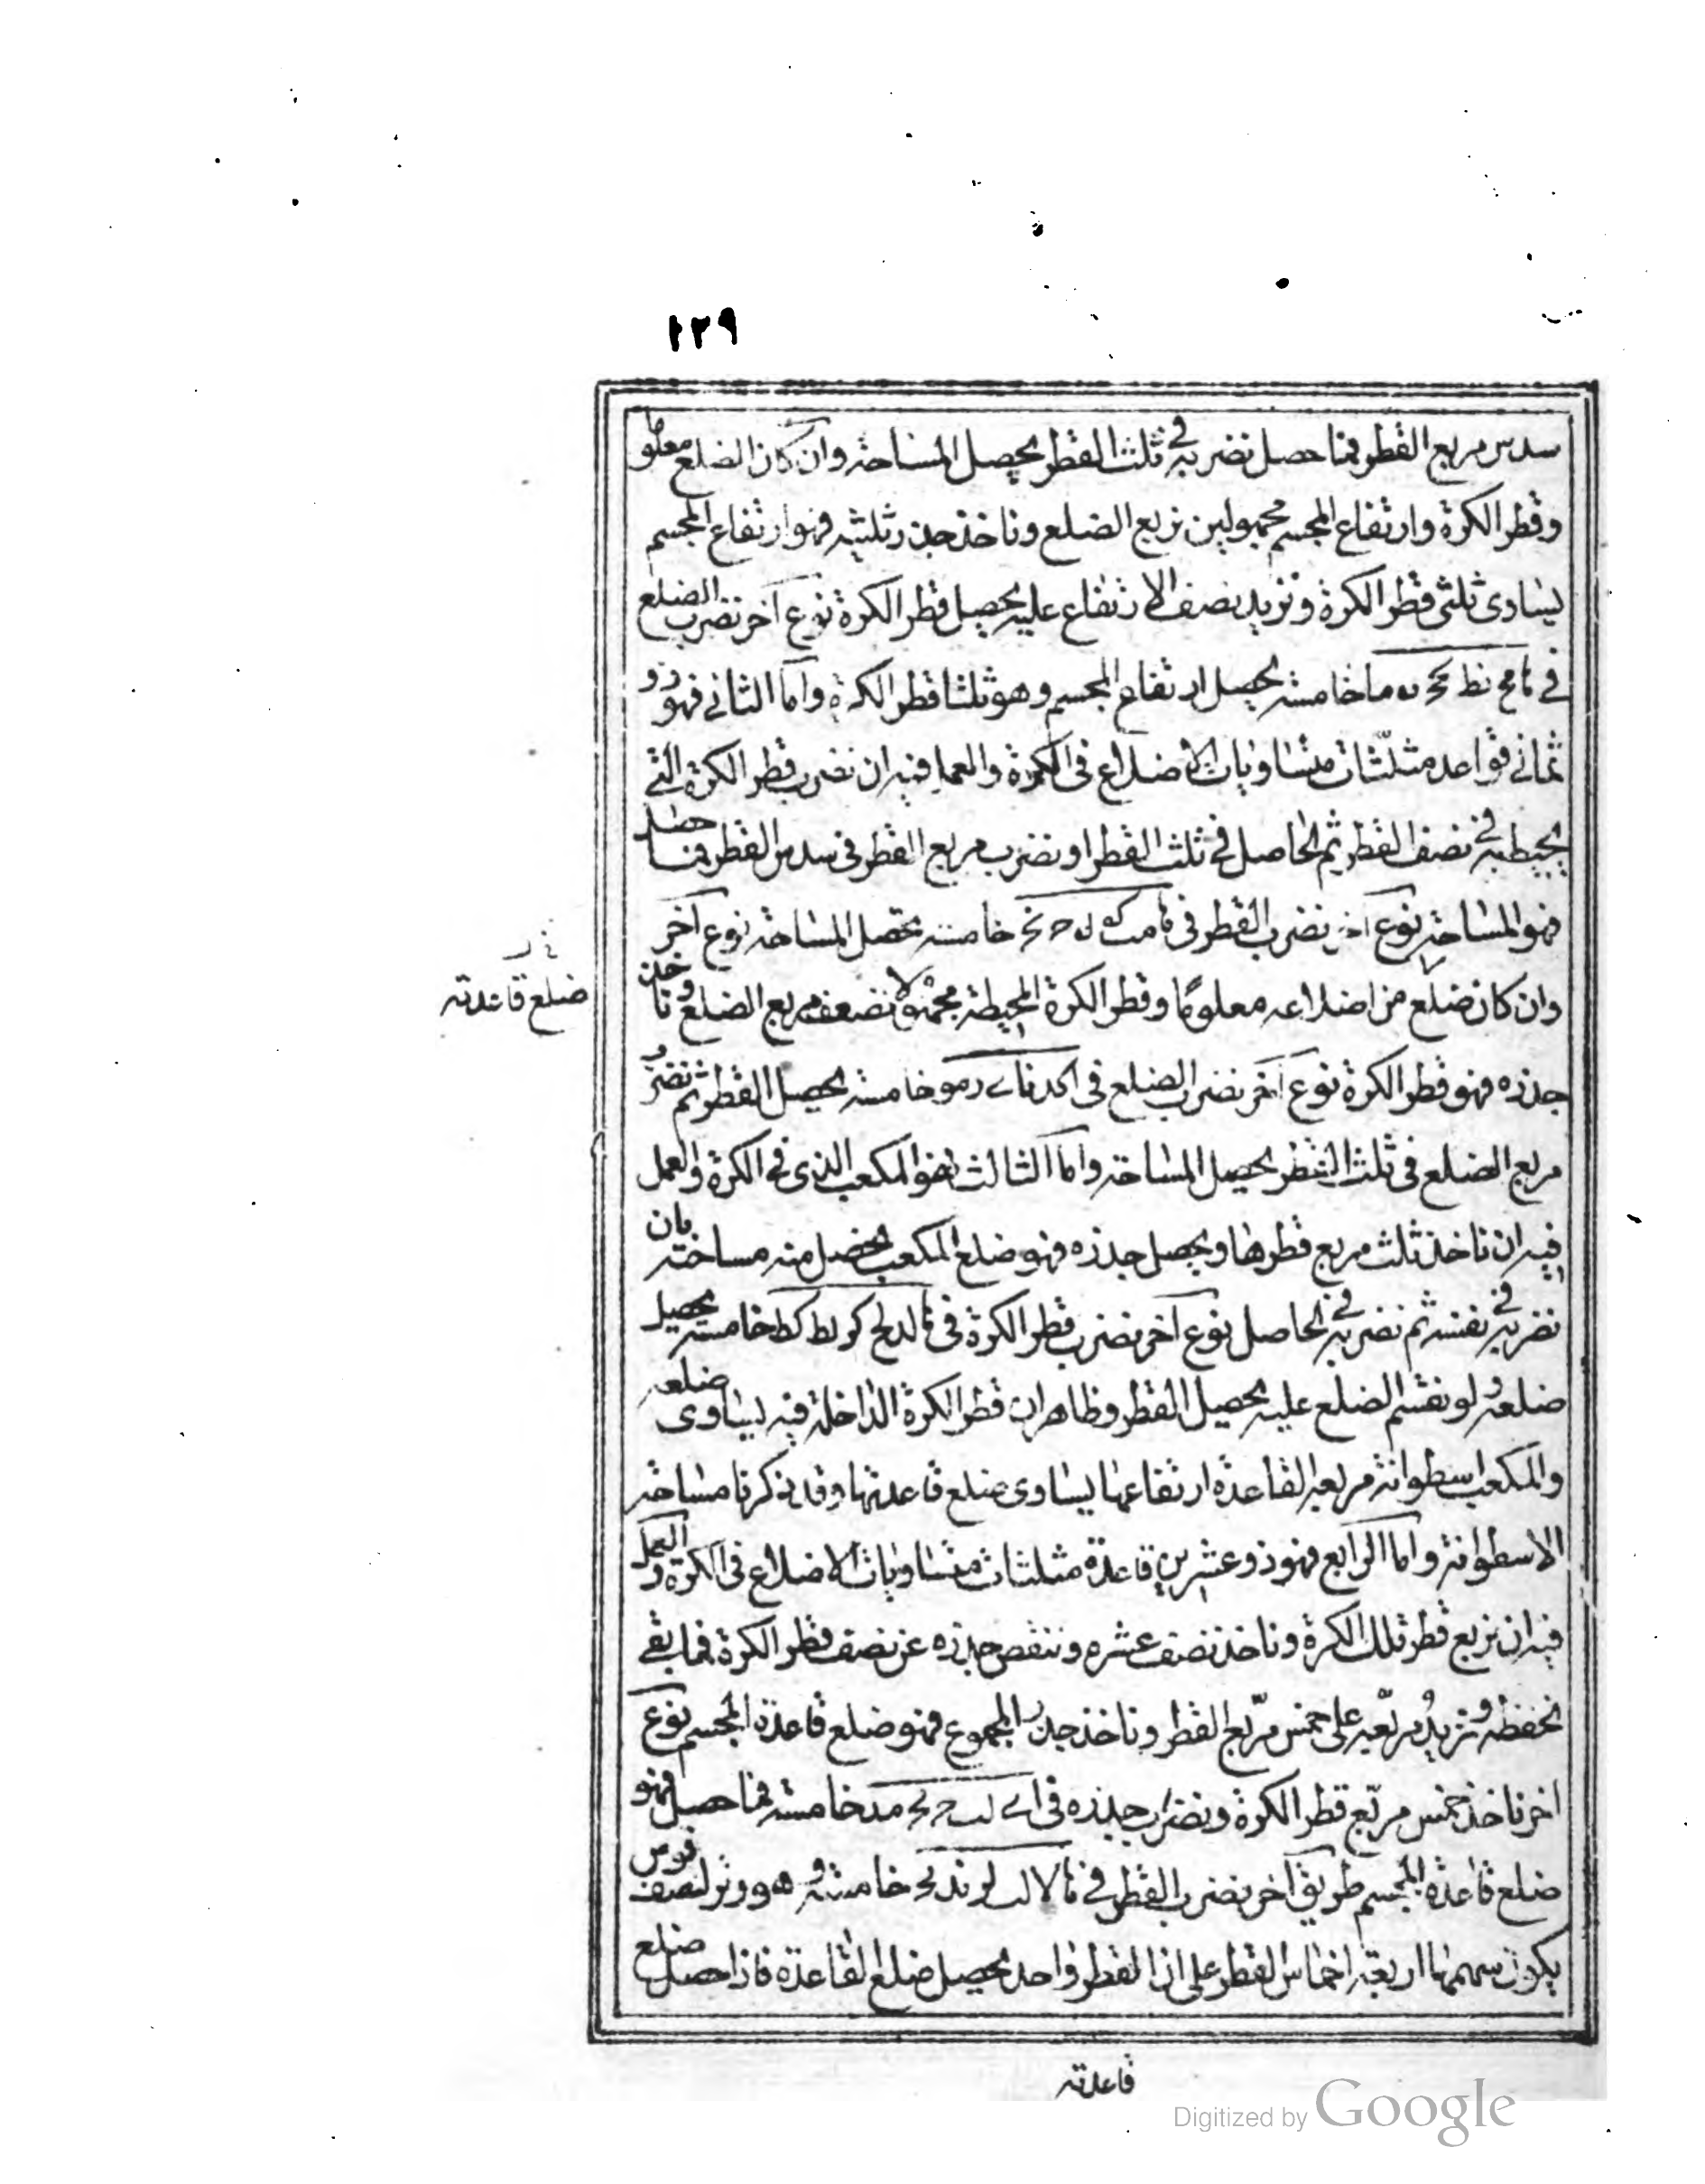 ١٢٩
سدس مربع القطر فما حصل نضربه في ثلث القطر يحصل المساحة وان كان الضلع معلوما
وقطر الكرة وارتفاع المجسم مجهولين نربع الضلع وناخذ جذر ثلثيه فهو ارتفاع المجسم
يساوى ثلثى قطر الكرة ونزيد نصف الارتفاع عليه يحصل قطر الكرة نوع آخر نضرب الضلع
في خامسة يحصل ارتفاع المجسم وهو ثلثا قطر الكرة واما الثاني فهو ذو
ثماني قواعد مثلثات متساويات الاضلاع في الكرة والعمل فيه ان نضرب قطر الكرة التي
يحيط به في نصف القطر ثم الحاصل في ثلث القطر او نضرب مربع القطر في سدس القطر فما حصل
فهو المساحة نوع آخر نضرب القطر في خامسة يحصل المساحة نوع آخر
وان كان ضلع من اضلاعه معلومًا وقطر الكرة المحيطة مجهولا نضعف مربع الضلع وناخذ
ضلع قاعدته
جذره فهو قطر الكرة نوع آخر نضرب الضلع في خامسة يحصل القطر ثم نضرب
مربع الضلع في ثلث القطر يحصل المساحة واما الثالث فهو المكعب الذى في الكرة والعمل
فيه ان ناخذ ثلث مربع قطرها ويحصل جذره فهو ضلع المكعب يحصل منه مساحته بان
نضربه في نفسه ثم نضربه في الحاصل نوع آخر نضرب قطر الكرة في خامسة يحصل
ضلعه ولو نقسم الضلع عليه يحصل القطر وظاهر ان قطر الكرة الداخلة فيه يساوى ضلعه
والمكعب اسطوانة مربعة القاعدة ارتفاعها يساوى ضلع قاعدتها وقد ذكرنا مساحة
الاسطوانة واما الرابع فهو ذو عشرين قاعدة مثلثات متساويات الاضلاع في الكرة والعمل
فيه ان نربع قطر تلك الكرة وناخذ نصف عشره وننقص جذره عن نصف قطر الكرة فما بقى
نحفظه ونزيد مربعه على خمس مربع القطر وناخذ جذر المجموع فهو ضلع قاعدة المجسم نوع
اخر ناخذ خمس مربع قطر الكرة ونضرب جذره في خامسة فما حصل فهو
ضلع قاعدة المجسم طريق آخر نضرب القطر في خامسة وهو وتر لنصف قوس
يكون سهمها اربعة اخماس القطر على ان القطر واحد يحصل ضلع القاعدة فاذا حصل ضلع
قاعدته
Digitized by Google